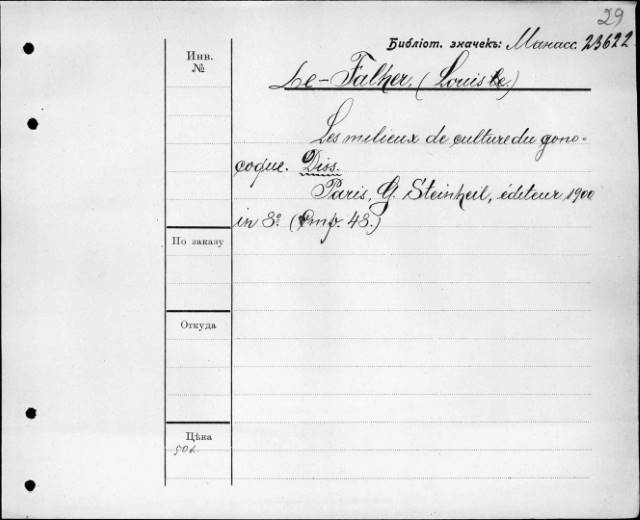 29
Библіот. значекъ: Манасс. 23622
Инв.
№
Le-Falher, (Louis le.)
Les milieux de culture du gono-
coque. Diss.
Paris, G. Steinheil, éditeur, 1900
in 8º (стр. 48.)
По заказу
Откуда
Цѣна
50к.